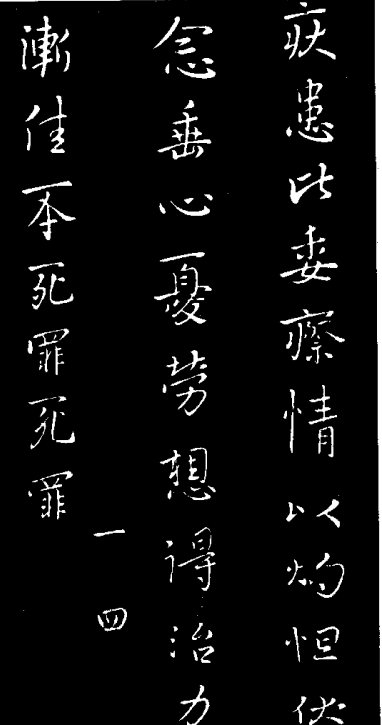 疾患比委瘵情以灼怛伏
念垂心憂勞想得治力
一四
漸佳不死罪死罪